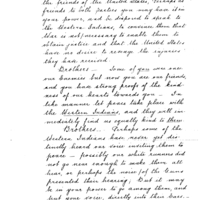 the friends of the United States, Perhaps as
friends to both parties you may have it in
your power, and be disposed to speak to
the Western Indians, to convince them that
War is not necessary to enable them to
obtain justice and that the United States
have no desire to revenge the injuries
they had received
Brothers — Some of you were our
enemies but now you are our friends,
and you have strong proofs of the kind-
ness of our hearts towards you — In
like manner let peace take place with
the Western Indians, and they will im-
mediately find us equally kind to them
Brothers — Perhaps some of the
Western Indians have never yet dis-
tinctly heard our voice inviting them to
peace — possibly our white runners did
not go near enough to make them all
hear, or perhaps the noise of the Guns
prevented their hearing — But it may
be in your power to go among them, and
put our voice, directly into their ears